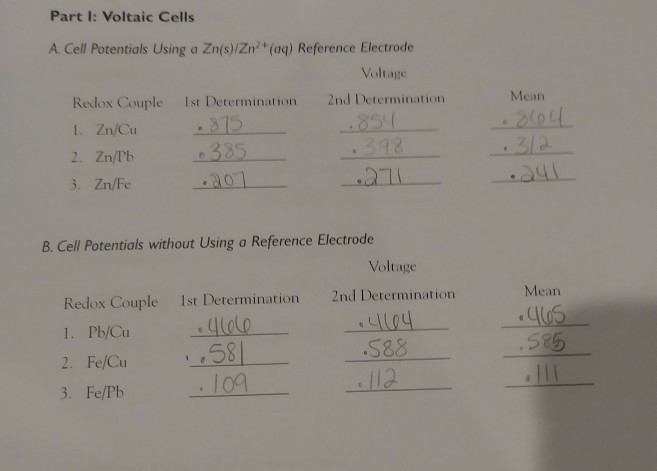 Part I: Voltaic Cells
A. Cell Potentials Using a Zn(s)/Zn²⁺(aq) Reference Electrode
Voltage
Redox Couple 1st Determination 2nd Determination Mean
1. Zn/Cu .875 .854 .864
2. Zn/Pb .385 .398 .312
3. Zn/Fe .207 .271 .241
B. Cell Potentials without Using a Reference Electrode
Voltage
Redox Couple 1st Determination 2nd Determination Mean
1. Pb/Cu .466 .464 .465
2. Fe/Cu .581 .588 .585
3. Fe/Pb .109 .112 .111